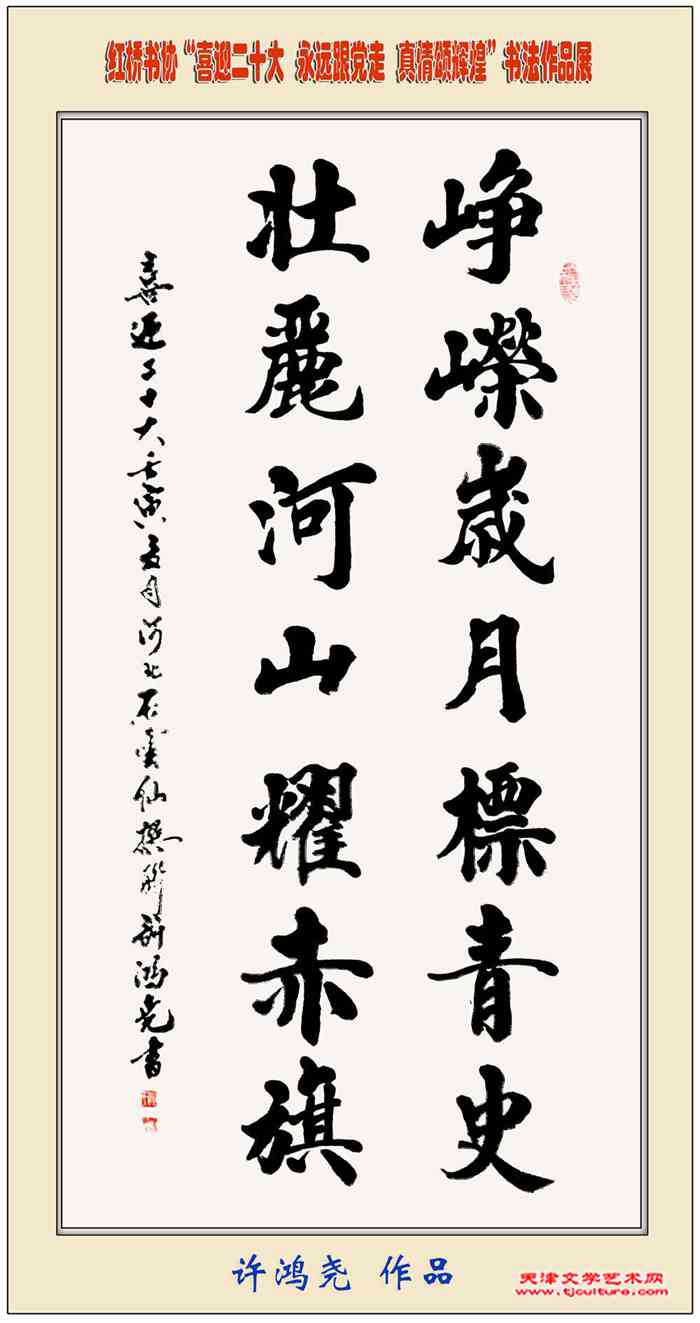 红桥书协“喜迎二十大 永远跟党走 真情颂辉煌”书法作品展
峥嵘歲月標青史
壮麗河山耀赤旗
喜迎二十大壬寅夏月河北石雲仙撰聯許鴻堯書
许鸿尧 作品
天津文学艺术网
www.tjculture.com